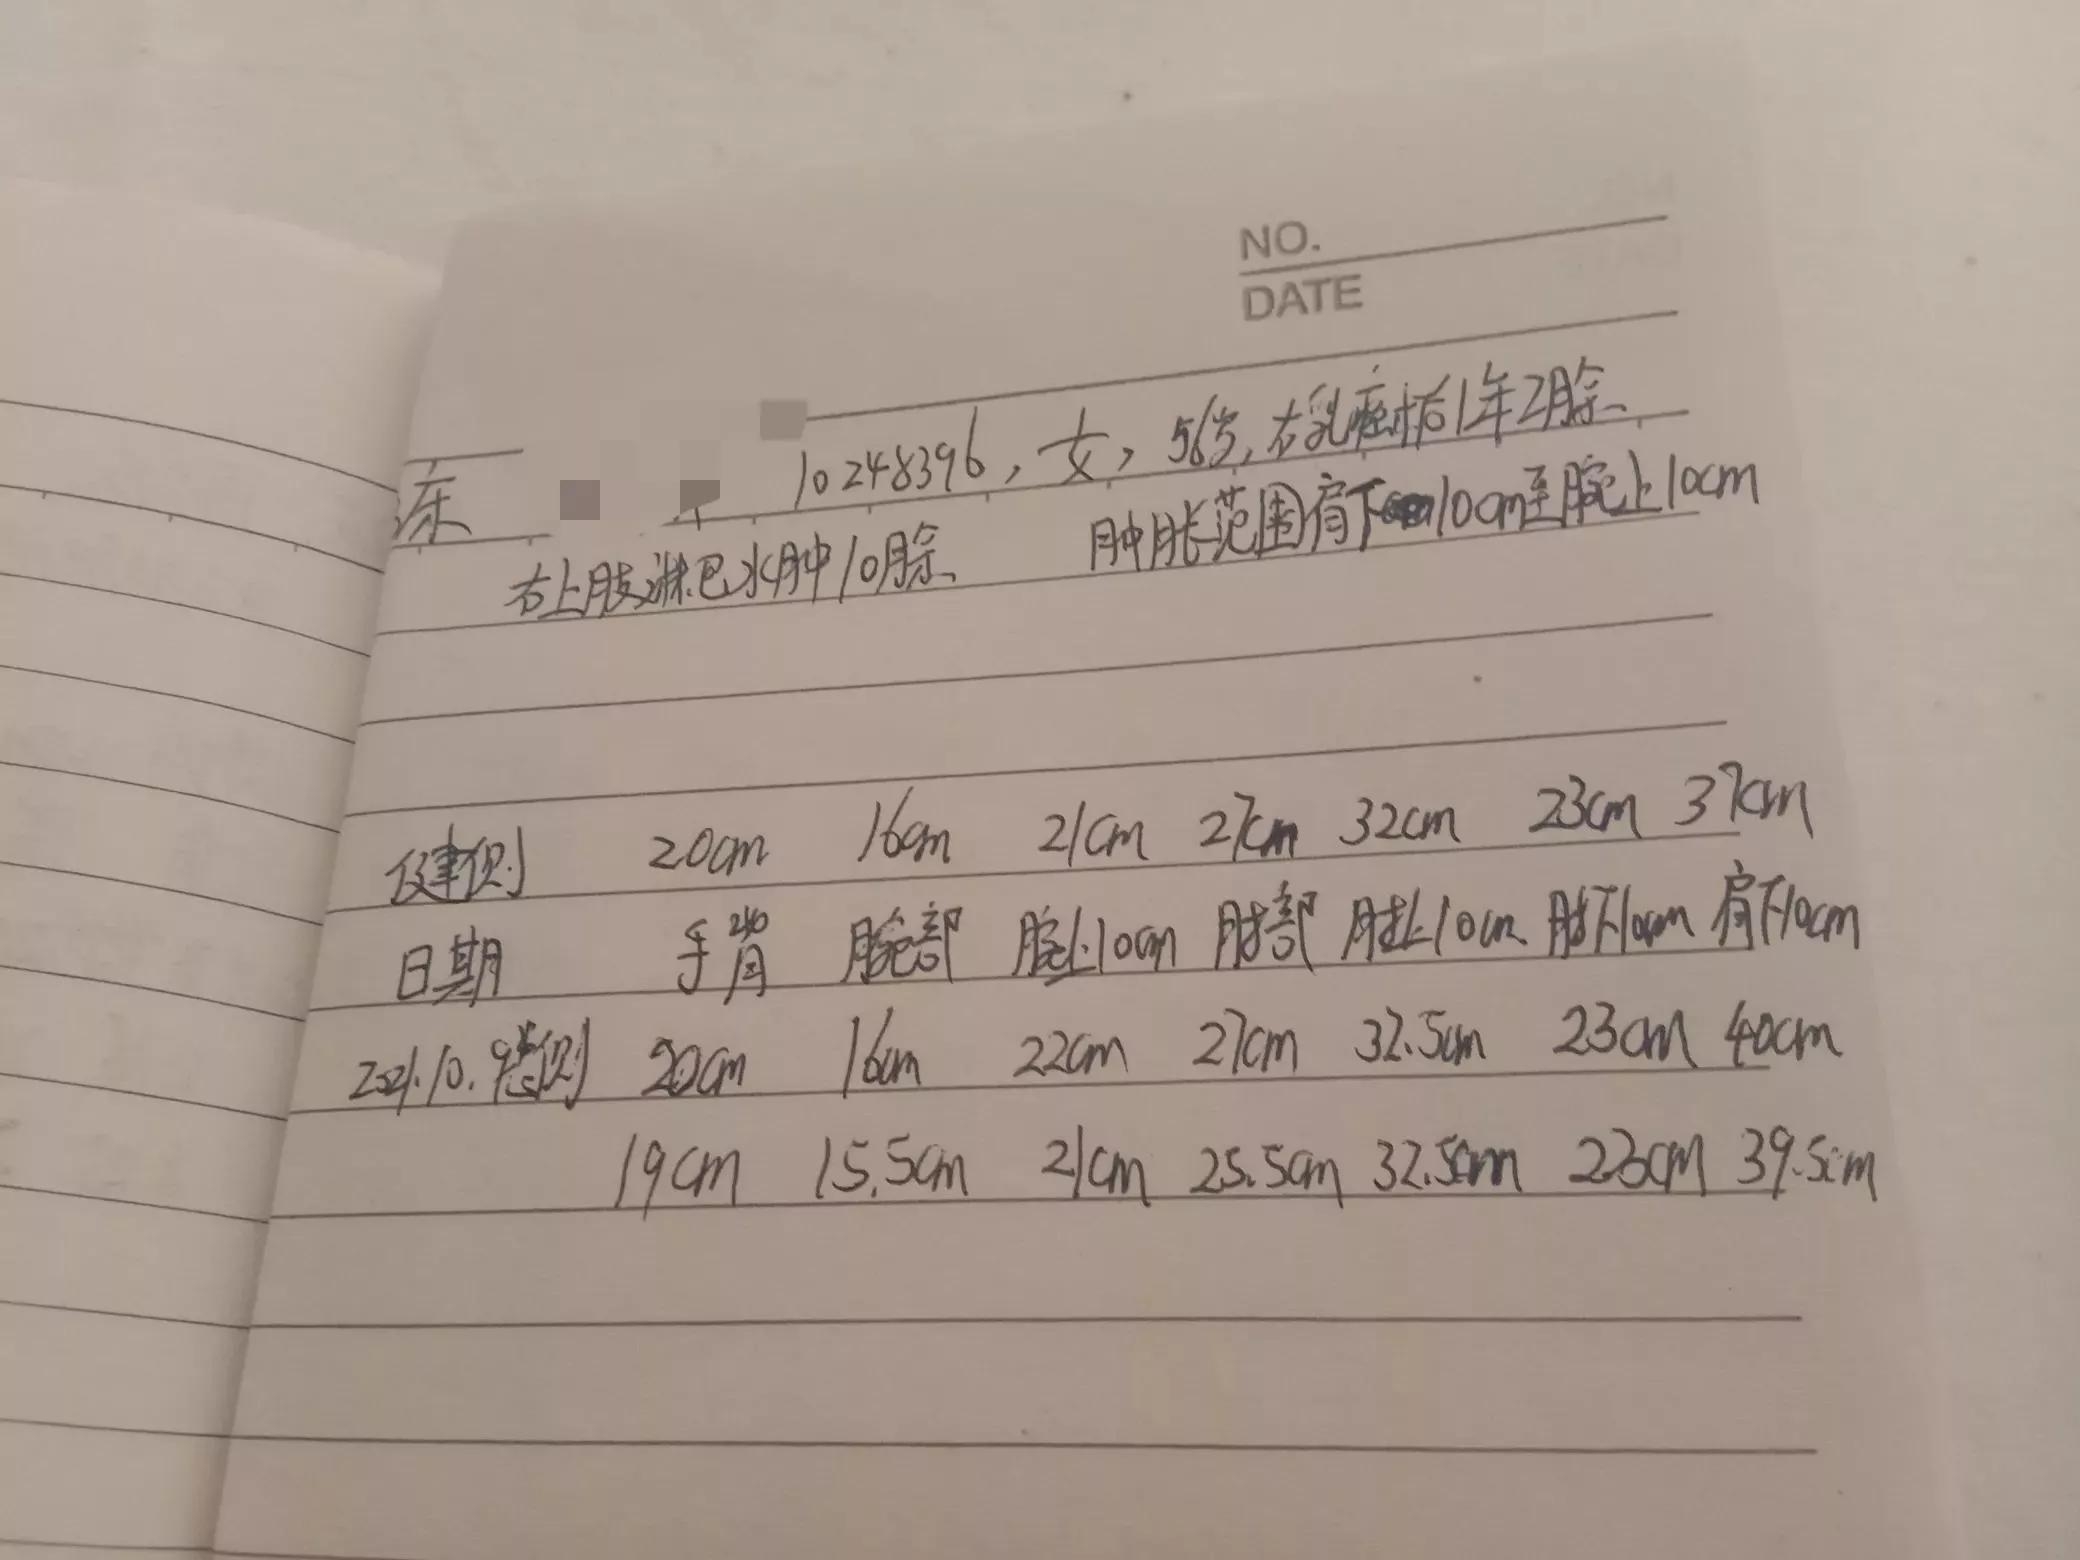 NO.
DATE
10248396，女，56岁，右乳癌术后1年2月余
右上肢淋巴水肿10月余 肿胀范围肩下10cm至腕上10cm
健侧 20cm 16cm 21cm 27cm 32cm 23cm 37cm
日期 手背 腕部 腕上10cm 肘部 肘上10cm 肘下10cm 肩下10cm
2021.10.9患侧 20cm 16cm 22cm 27cm 32.5cm 23cm 40cm
19cm 15.5cm 21cm 25.5cm 32.5cm 23cm 39.5cm